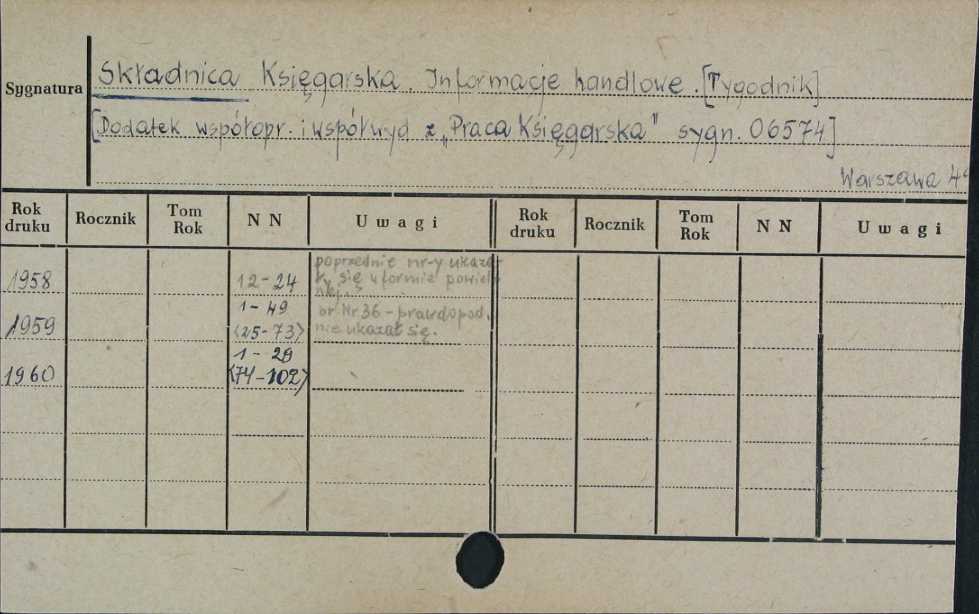 Sygnatura
Składnica Księgarska. Informacje handlowe. [Tygodnik]
[Dodatek współopr. i współwyd z „Praca Księgarska" sygn. 06574]
Warszawa
Rok druku Rocznik Tom Rok NN Uwagi Rok druku Rocznik Tom Rok NN Uwagi
poprzednie nr-y ukaza-
1958 12-24 ły się w formie powiel.
1-49 br Nr 36 - prawdopod.
1959 (25-73) nie ukazał się.
1-29
1960 (74-102)